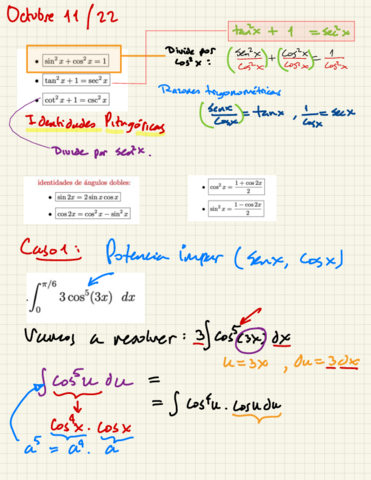 Octubre 11/22
tan²x + 1 = sec²x
• sin² x + cos² x = 1
• tan² x + 1 = sec² x
• cot² x + 1 = csc² x
Divide por cos²x : (sen²x/cos²x) + (cos²x/cos²x) = 1/cos²x
Razones trigonométricas
(senx/cosx) = tanx , 1/cosx = secx
Identidades Pitagóricas
Divide por sen²x.
identidades de ángulos dobles:
• sin 2x = 2 sin x cos x
• cos 2x = cos² x − sin² x
• cos² x = (1 + cos 2x)/2
• sin² x = (1 − cos 2x)/2
Caso 1: Potencia impar (senx, cosx)
∫₀^(π/6) 3 cos⁵(3x) dx
Vamos a resolver: 3∫cos⁵(3x) dx
u = 3x , du = 3dx
∫cos⁵u du =
cos⁴x . cosx
= ∫cos⁴u . cosu du
a⁵ = a⁴ . a